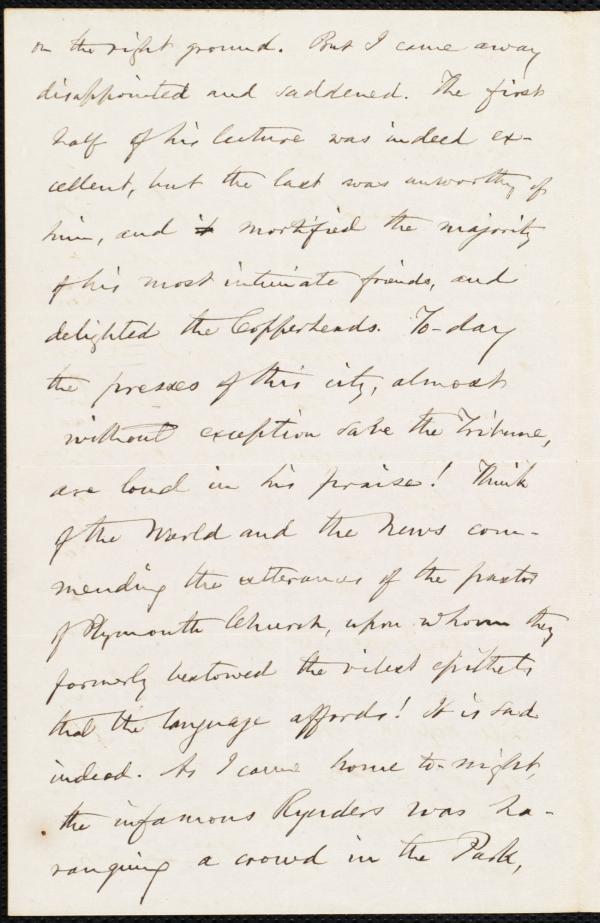 on the right ground. But I came away
disappointed and saddened. The first
half of his lecture was indeed ex-
cellent, but the last was unworthy of
him, and it mortified the majority
of his most intimate friends, and
delighted the Copperheads. To-day
the presses of this city, almost
without exception save the Tribune,
are loud in his praise! Think
of the World and the News com-
mending the utterances of the pastor
of Plymouth Church, upon whom they
formerly bestowed the vilest epithets
that the language affords! It is sad
indeed. As I came home to-night,
the infamous Rynders was ha-
ranguing a crowd in the Park,